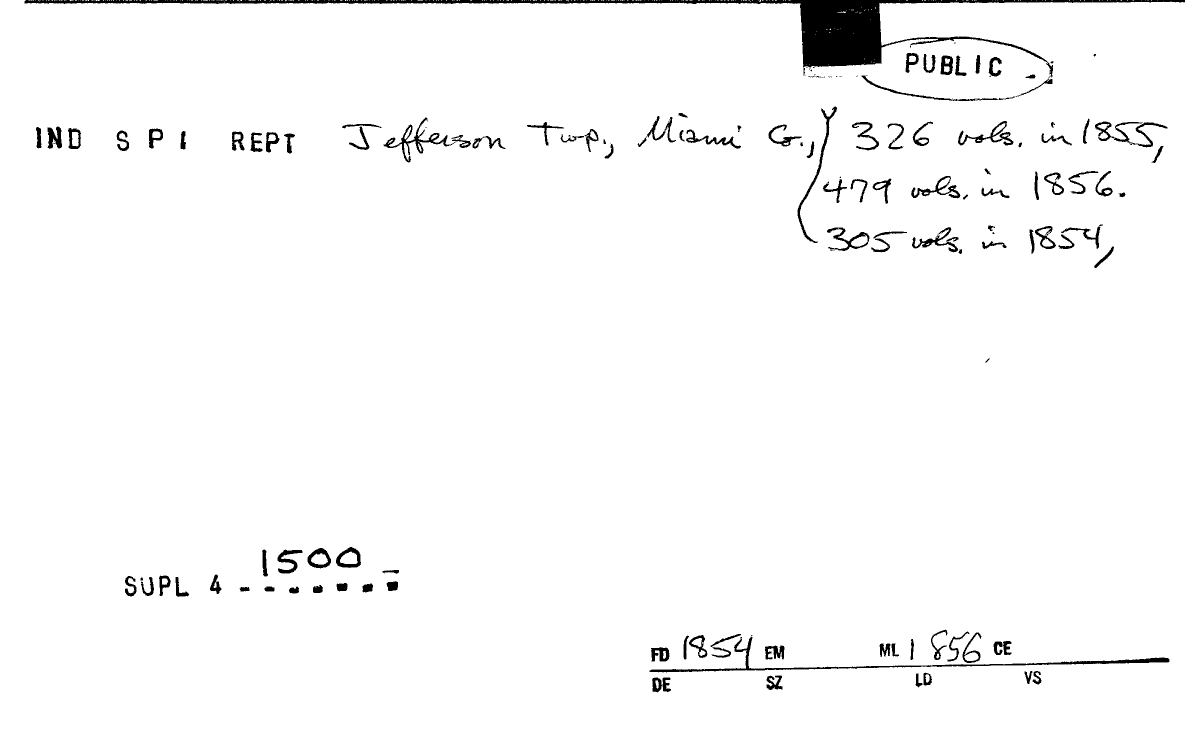 PUBLIC
IND S P I REPT Jefferson Twp., Miami Co., 326 vols. in 1855,
479 vols. in 1856.
305 vols. in 1854,
1500
SUPL 4
FD 1854 EM ML 1856 CE
DE SZ LD VS